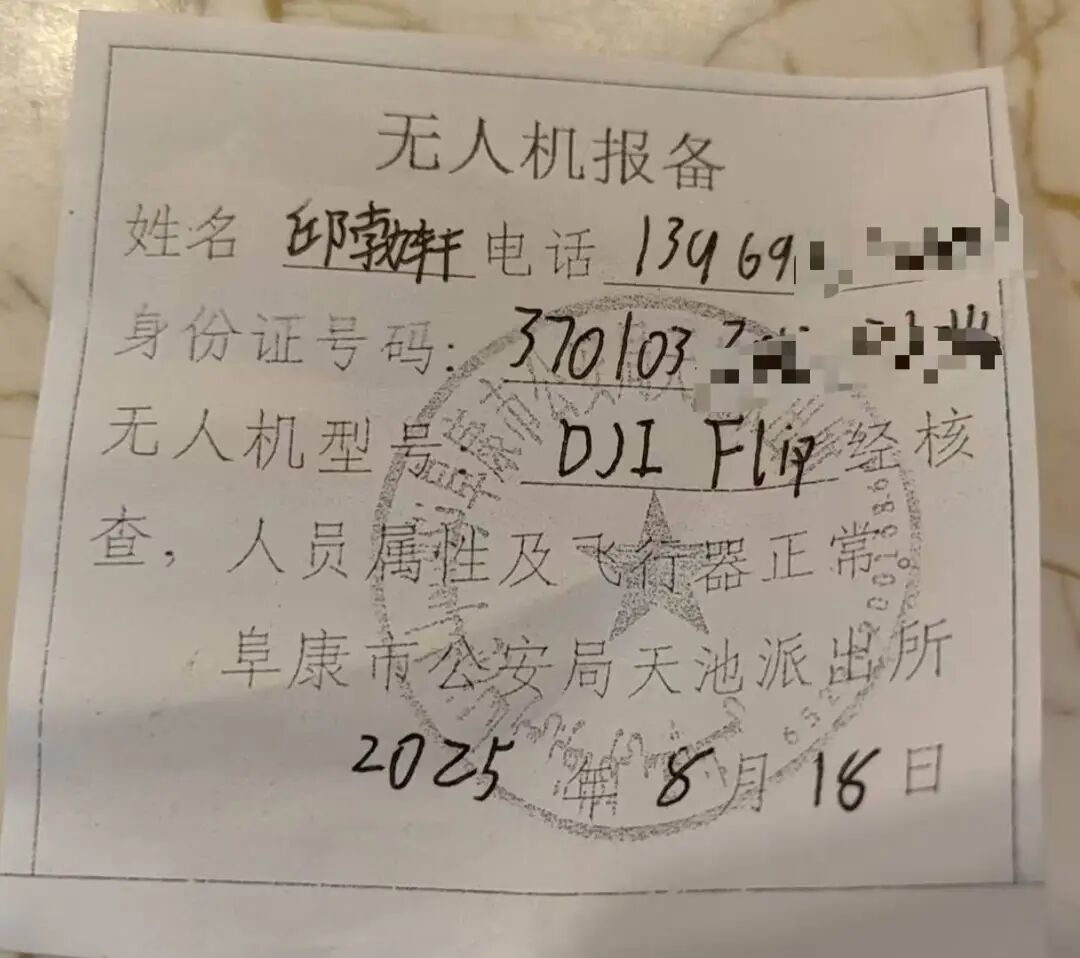 无人机报备
姓名 邱勃轩 电话 13969
身份证号码: 370103
无人机型号: DJI Flip 经核
查,人员属性及飞行器正常。
阜康市公安局天池派出所
2025年8月18日